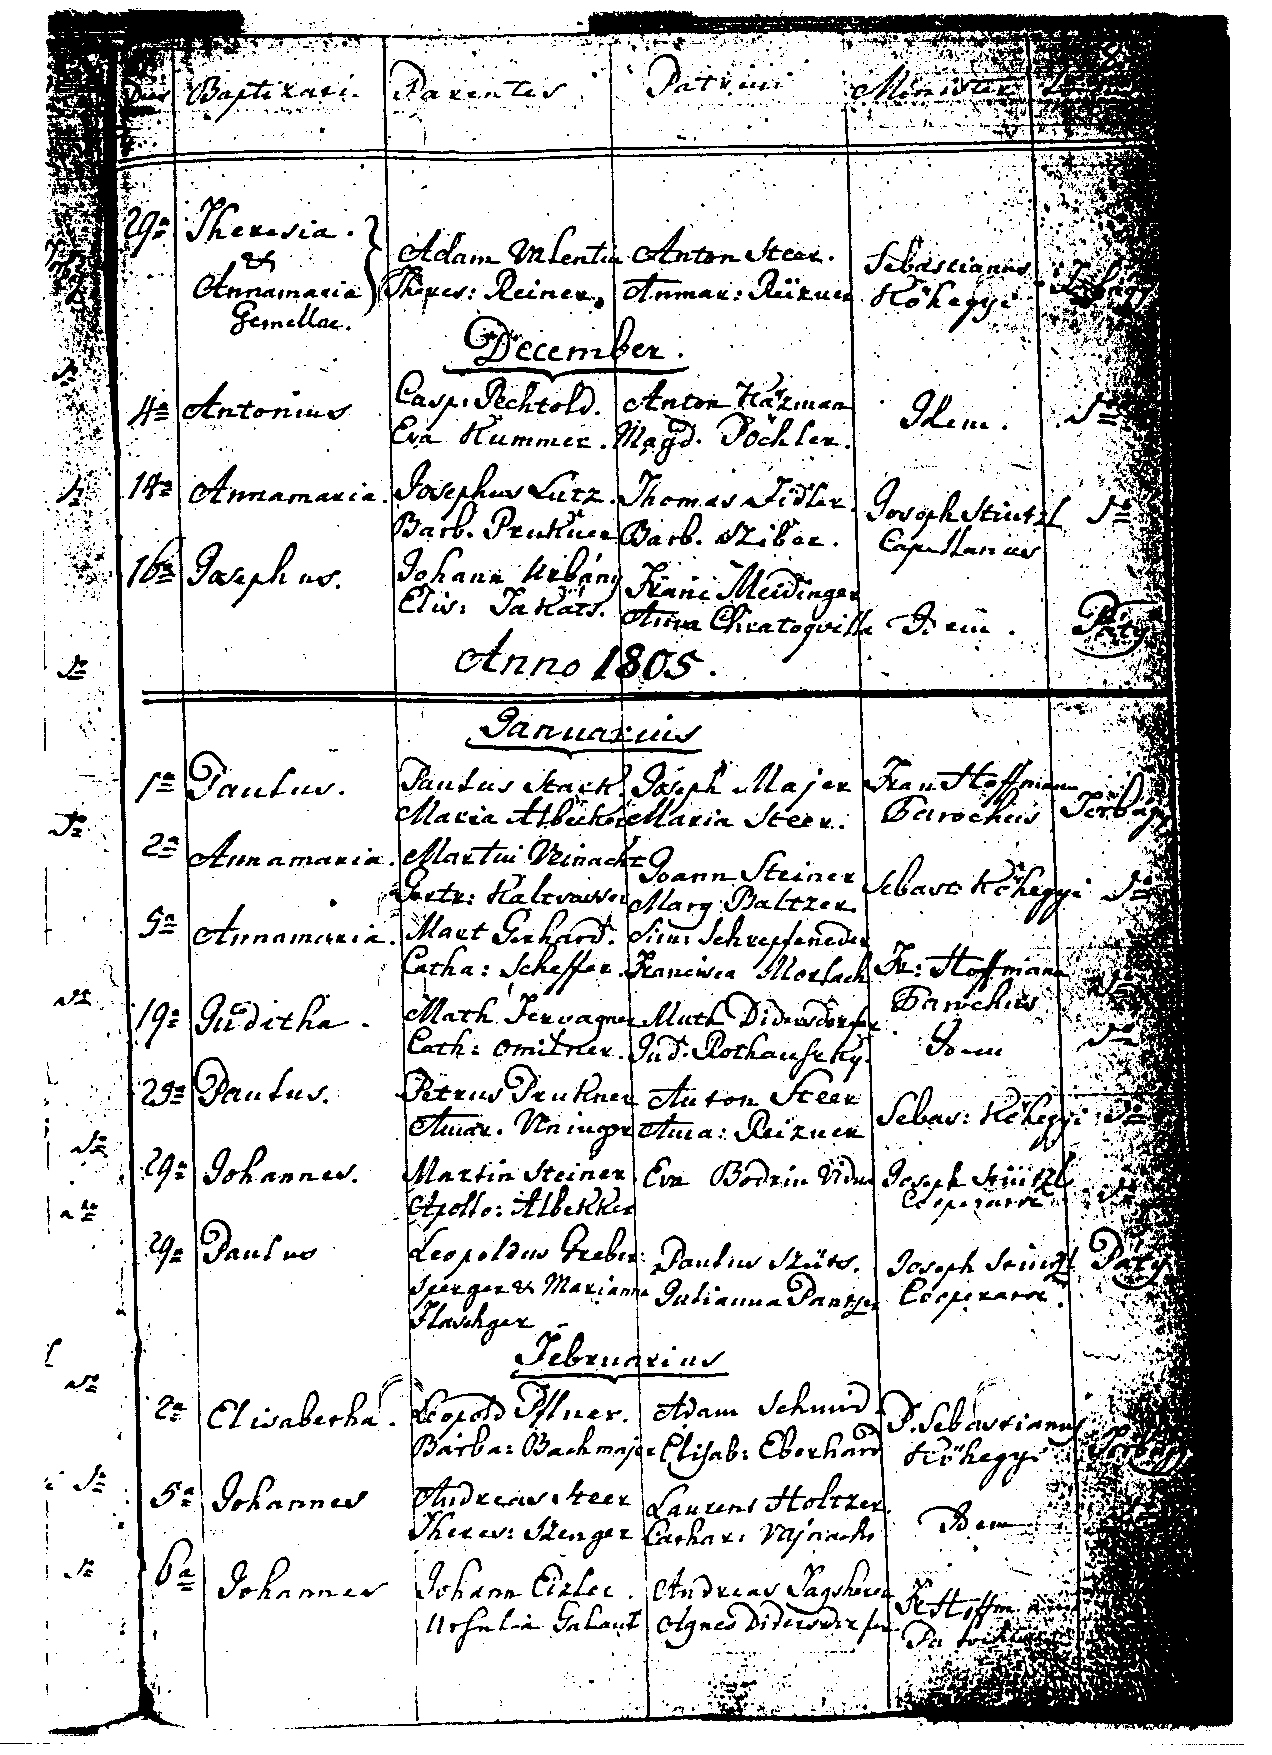 Dies Baptizati. Parentes Patrini Minister
29a Theresia.
& Annamaria
Gemellae.
Adam Valentin
Theres: Reiner.
Anton Steer.
Anmar: Reizner
Sebastianus
Kőhegyi
Torbágy
December.
4a Antonius
Casp: Pechtold.
Eva Kummer.
Anton Házman
Magd. Pöchler.
Idem.
14a Annamaria.
Josephus Lutz.
Barb. Prukner
Thomas Fidler.
Barb. Sziber.
Joseph Stintzl
Capellanus
16a Josephus.
Johann Urbány
Elis: Takáts.
Franc Meidinger
Anna
Idem.
Páty
Anno 1805.
Januarius
1a Paulus.
Paulus Stark.
Maria Albecker
Joseph Majer
Maria Steer.
Fran Hoffmann
Parochus
Torbágy
2a Annamaria.
Martin Veinacht
Gertr: Kaltvasser
Joann Steiner
Marg Baltzer.
Sebast: Kőhegyi
5a Annamaria.
Mart Gerhard.
Catha: Scheffer.
Sim: Schrepfeneder
Francisca Morlach
Fr: Hoffmann
Parochus
19a Juditha.
Math Fervagner
Cath: Omitner.
Math Didersdorfer
Jud. Rothauszky.
Idem
Paulus.
Petrus Prukner
Anmar. Uninger
Anton Steer
Anna: Reizner
Sebas: Kőhegyi
29a Johannes.
Martin Steiner
Apollo: Albekker
Eva Bodrin Vidua
Joseph Stintzl
Cooperator
29a Paulus
Leopoldus Greben
sperger & Marianna
Flaschger
Paulus Szüts.
Julianna Pantzer
Joseph Stintzl
Cooperator.
Páty
Februarius
2a Elisabetha.
Leopold Pflner.
Barba: Bachmajer
Adam Schmid.
Elisab: Eberhard
P. Sebastianus
Kőhegyi
Torbágy
5a Johannes
Andreas Steer
Theres: Szenger
Laurens Holtzer.
Cathar: Vajnacht
Idem
6a Johannes
Johann Eizler.
Ursula Galaut
Andreas
Agnes Didersdorfer
Fr Hoffmann
Parochus